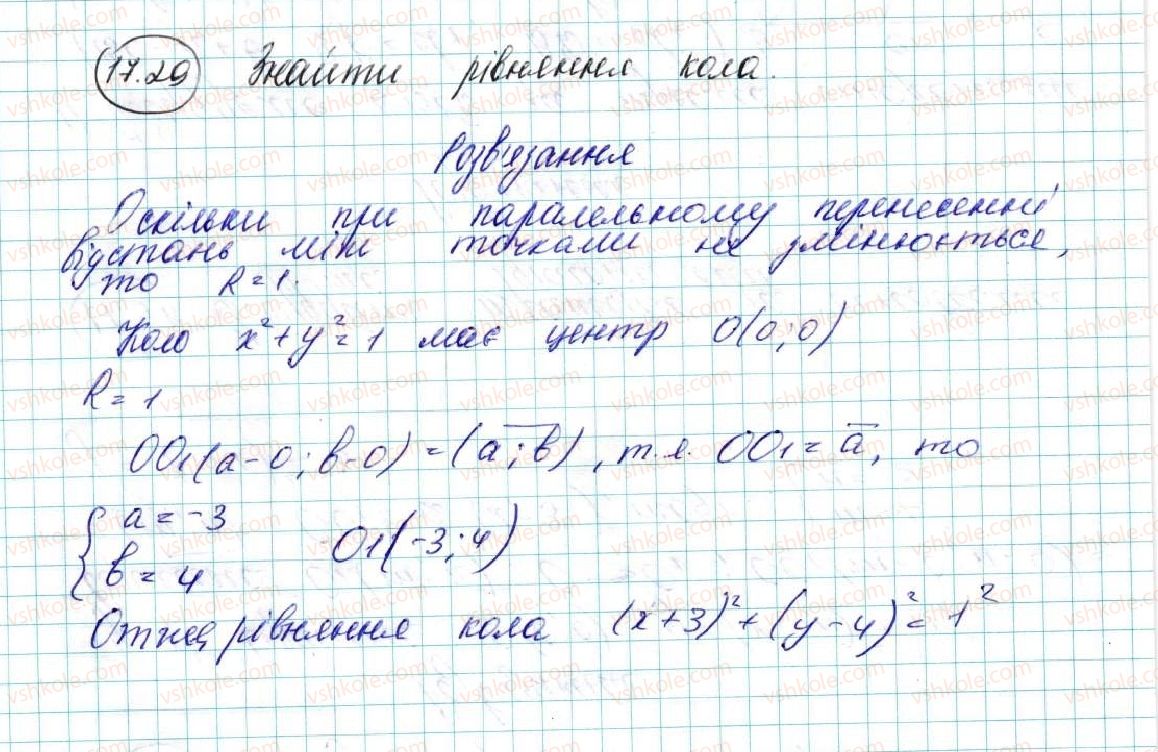 17.29 Знайти рівняння кола.
Розв'язання
Оскільки при паралельному перенесенні
відстань між точками не змінюється,
то R = 1.
Коло x² + y² = 1 має центр O(0; 0)
R = 1
OO₁(a-0; b-0) = (a; b), т.я. OO₁ = a, то
{ a = -3
b = 4 O₁(-3; 4)
Отже, рівняння кола (x+3)² + (y-4)² = 1²